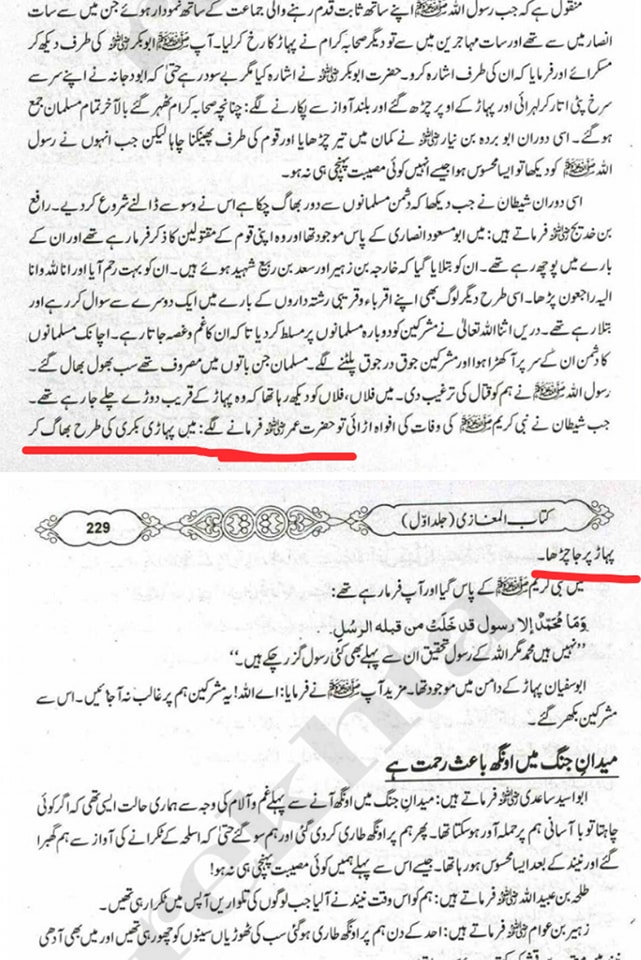 منقول ہے کہ جب رسول اللہ ﷺ اپنے ساتھ ثابت قدم رہنے والی جماعت کے ساتھ نمودار ہوئے جن میں سے سات
انصار میں سے تھے اور سات مہاجرین میں سے تو دیگر صحابہ کرام نے پہاڑ کا رخ کر لیا۔ آپ ﷺ ابوبکر رضی اللہ عنہ کی طرف دیکھ کر
مسکرائے اور فرمایا کہ ان کی طرف اشارہ کرو۔ حضرت ابوبکر رضی اللہ عنہ نے اشارہ کیا مگر بے سود رہے حتیٰ کہ ابودجانہ نے اپنے سر سے
سرخ پٹی اتار کر لہرائی اور پہاڑ کے اوپر چڑھ گئے اور بلند آواز سے پکارنے لگے: چنانچہ صحابہ کرام ٹھہر گئے بالآخر تمام مسلمان جمع
ہو گئے۔ اسی دوران ابو بردہ بن نیار رضی اللہ عنہ نے کمان میں تیر چڑھایا اور قوم کی طرف پھینکنا چاہا لیکن جب انہوں نے رسول
اللہ ﷺ کو دیکھا تو ایسا محسوس ہوا جیسے انہیں کوئی مصیبت پہنچی ہی نہ ہو۔
اسی دوران شیطان نے جب دیکھا کہ دشمن مسلمانوں سے دور بھاگ چکا ہے اس نے وسوسے ڈالنے شروع کر دیے۔ رافع
بن خدیج رضی اللہ عنہ فرماتے ہیں: میں ابو مسعود انصاری کے پاس موجود تھا اور وہ اپنی قوم کے مقتولین کا ذکر فرما رہے تھے اور ان کے
بارے میں پوچھ رہے تھے۔ ان کو بتلایا گیا کہ خارجہ بن زہیر اور سعد بن ربیع شہید ہوئے ہیں۔ ان کو بہت رحم آیا اور انا للہ وانا
الیہ راجعون پڑھا۔ اسی طرح دیگر لوگ بھی اپنے اقرباء و قریبی رشتہ داروں کے بارے میں ایک دوسرے سے سوال کر رہے اور
بتلا رہے تھے۔ دریں اثنا اللہ تعالیٰ نے مشرکین کو دوبارہ مسلمانوں پر مسلط کر دیا تاکہ ان کا غم و غصہ جاتا رہے۔ اچانک مسلمانوں
کا دشمن ان کے سر پر آ کھڑا ہوا اور مشرکین جوق در جوق پلٹنے لگے۔ مسلمان جن باتوں میں مصروف تھے سب بھول بھال گئے۔
رسول اللہ ﷺ نے ہم کو قتال کی ترغیب دی۔ میں فلاں، فلاں کو دیکھ رہا تھا کہ وہ پہاڑ کے قریب دوڑے چلے جا رہے تھے۔
جب شیطان نے نبی کریم ﷺ کی وفات کی افواہ اڑائی تو حضرت عمر رضی اللہ عنہ فرمانے لگے: میں پہاڑی بکری کی طرح بھاگ کر
کتاب المغازی (جلد اوّل)
229
پہاڑ پر جا چڑھا۔
میں نبی کریم ﷺ کے پاس گیا اور آپ فرما رہے تھے:
وَمَا مُحَمَّدٌ إلا رسول قد خَلَتْ من قبله الرسُلِ.
’’نہیں ہیں محمد مگر اللہ کے رسول تحقیق ان سے پہلے بھی کئی رسول گزر چکے ہیں۔‘‘
ابوسفیان پہاڑ کے دامن میں موجود تھا۔ مزید آپ ﷺ نے فرمایا: اے اللہ! یہ مشرکین ہم پر غالب نہ آ جائیں۔ اس سے
مشرکین بکھر گئے۔
میدانِ جنگ میں اونگھ باعث رحمت ہے
ابو اسید ساعدی رضی اللہ عنہ فرماتے ہیں: میدانِ جنگ میں اونگھ آنے سے پہلے غم و آلام کی وجہ سے ہماری حالت ایسی تھی کہ اگر کوئی
چاہتا تو با آسانی ہم پر حملہ آور ہو سکتا تھا۔ پھر ہم پر اونگھ طاری کر دی گئی اور ہم سو گئے حتیٰ کہ اسلحہ کے ٹکرانے کی آواز سے ہم گھبرا
گئے اور نیند کے بعد ایسا محسوس ہو رہا تھا۔ جیسے اس سے پہلے ہمیں کوئی مصیبت پہنچی ہی نہ ہو!
طلحہ بن عبید اللہ رضی اللہ عنہ فرماتے ہیں: ہم کو اس وقت نیند نے آ لیا جب لوگوں کی تلواریں آپس میں ٹکرا رہی تھیں۔
زہیر بن عوام رضی اللہ عنہ فرماتے ہیں: احد کے دن ہم پر اونگھ طاری ہو گئی سب کی ٹھوڑیاں سینوں کو چھو رہی تھیں اور میں بھی آدھی
rekhta